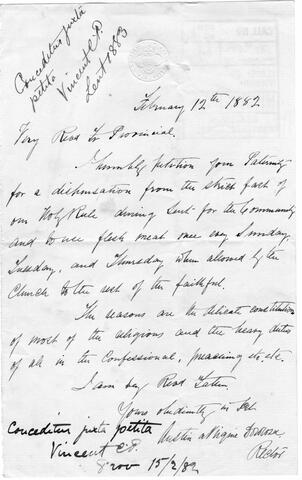 Conceditur juxta
petita
Vincent C.P.
Lent 1883
February 12th 1882
Very Revd Fr Provincial,
I humbly petition your Paternity
for a dispensation from the strict fast of
our Holy Rule during Lent for the Community
and to use flesh meat once every Sunday,
Tuesday, and Thursday when allowed by the
Church to the rest of the faithful.
The reasons are the delicate constitution
of most of the religious and the heavy duties
of all in the Confessional, preaching etc. etc.
I am very Revd Father
Yours obediently in
Conceditur juxta petita
Vincent C.P.
Prov 15/2/82
Rector